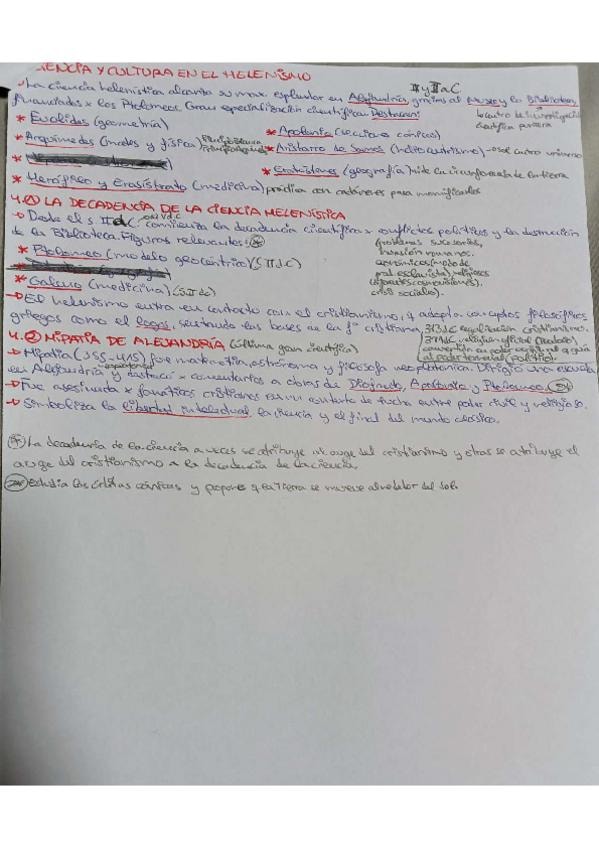 CIENCIA Y CULTURA EN EL HELENISMO
→ La ciencia helenística alcanza su max. esplendor en Alejandría gracias al Museo y la Biblioteca,
II y III a.C.
financiados x los Ptolomeos. Gran especialización científica. Destacan:
* Euclides (geometría)
* Apolonio (secciones cónicas)
* Arquímedes (mates y física)
* Aristarco de Samos (heliocentrismo) → sol centro universo
* Eratóstenes (geografía) mide la circunferencia de la tierra
* Herófilo y Erasístrato (medicina) práctica con cadáveres para
4.1 LA DECADENCIA DE LA CIENCIA HELENÍSTICA
→ Desde el s II d.C. comienza la decadencia científica x conflictos políticos y la destrucción
de la Biblioteca. Figuras relevantes:
(problemas sucesorios,
invasión romanos,
* Ptolomeo (modelo geocéntrico) (s II d.C)
económicos (modo de
prod. esclavista), religiosos
* Galeno (medicina) (s II d.C)
crisis sociales).
→ El helenismo entra en contacto con el cristianismo, q adopta conceptos filosóficos
griegos como el logos, sentando las bases de la fª cristiana.
4.2 HIPATIA DE ALEJANDRÍA (última gran científica)
→ Hipatia (355-415) fue matemática, astrónoma y filósofa neoplatónica. Dirigió una escuela
en Alejandría y destacó x comentarios a obras de Diofanto, Apolonio y Ptolomeo
→ Fue asesinada x fanáticos cristianos en un contexto de lucha entre poder civil y religioso.
→ Simboliza la libertad intelectual, la ciencia y el final del mundo clásico.
* La decadencia de la ciencia a veces se atribuye al auge del cristianismo y otras se atribuye el
auge del cristianismo a la decadencia de la ciencia.
estudia las órbitas cónicas y propone q la Tierra se mueve alrededor del sol.